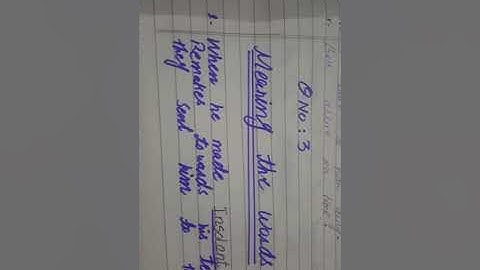 Q No: 3
Meaning the words
1. When he made Insolent
Remakes towards his te
they sent him to t